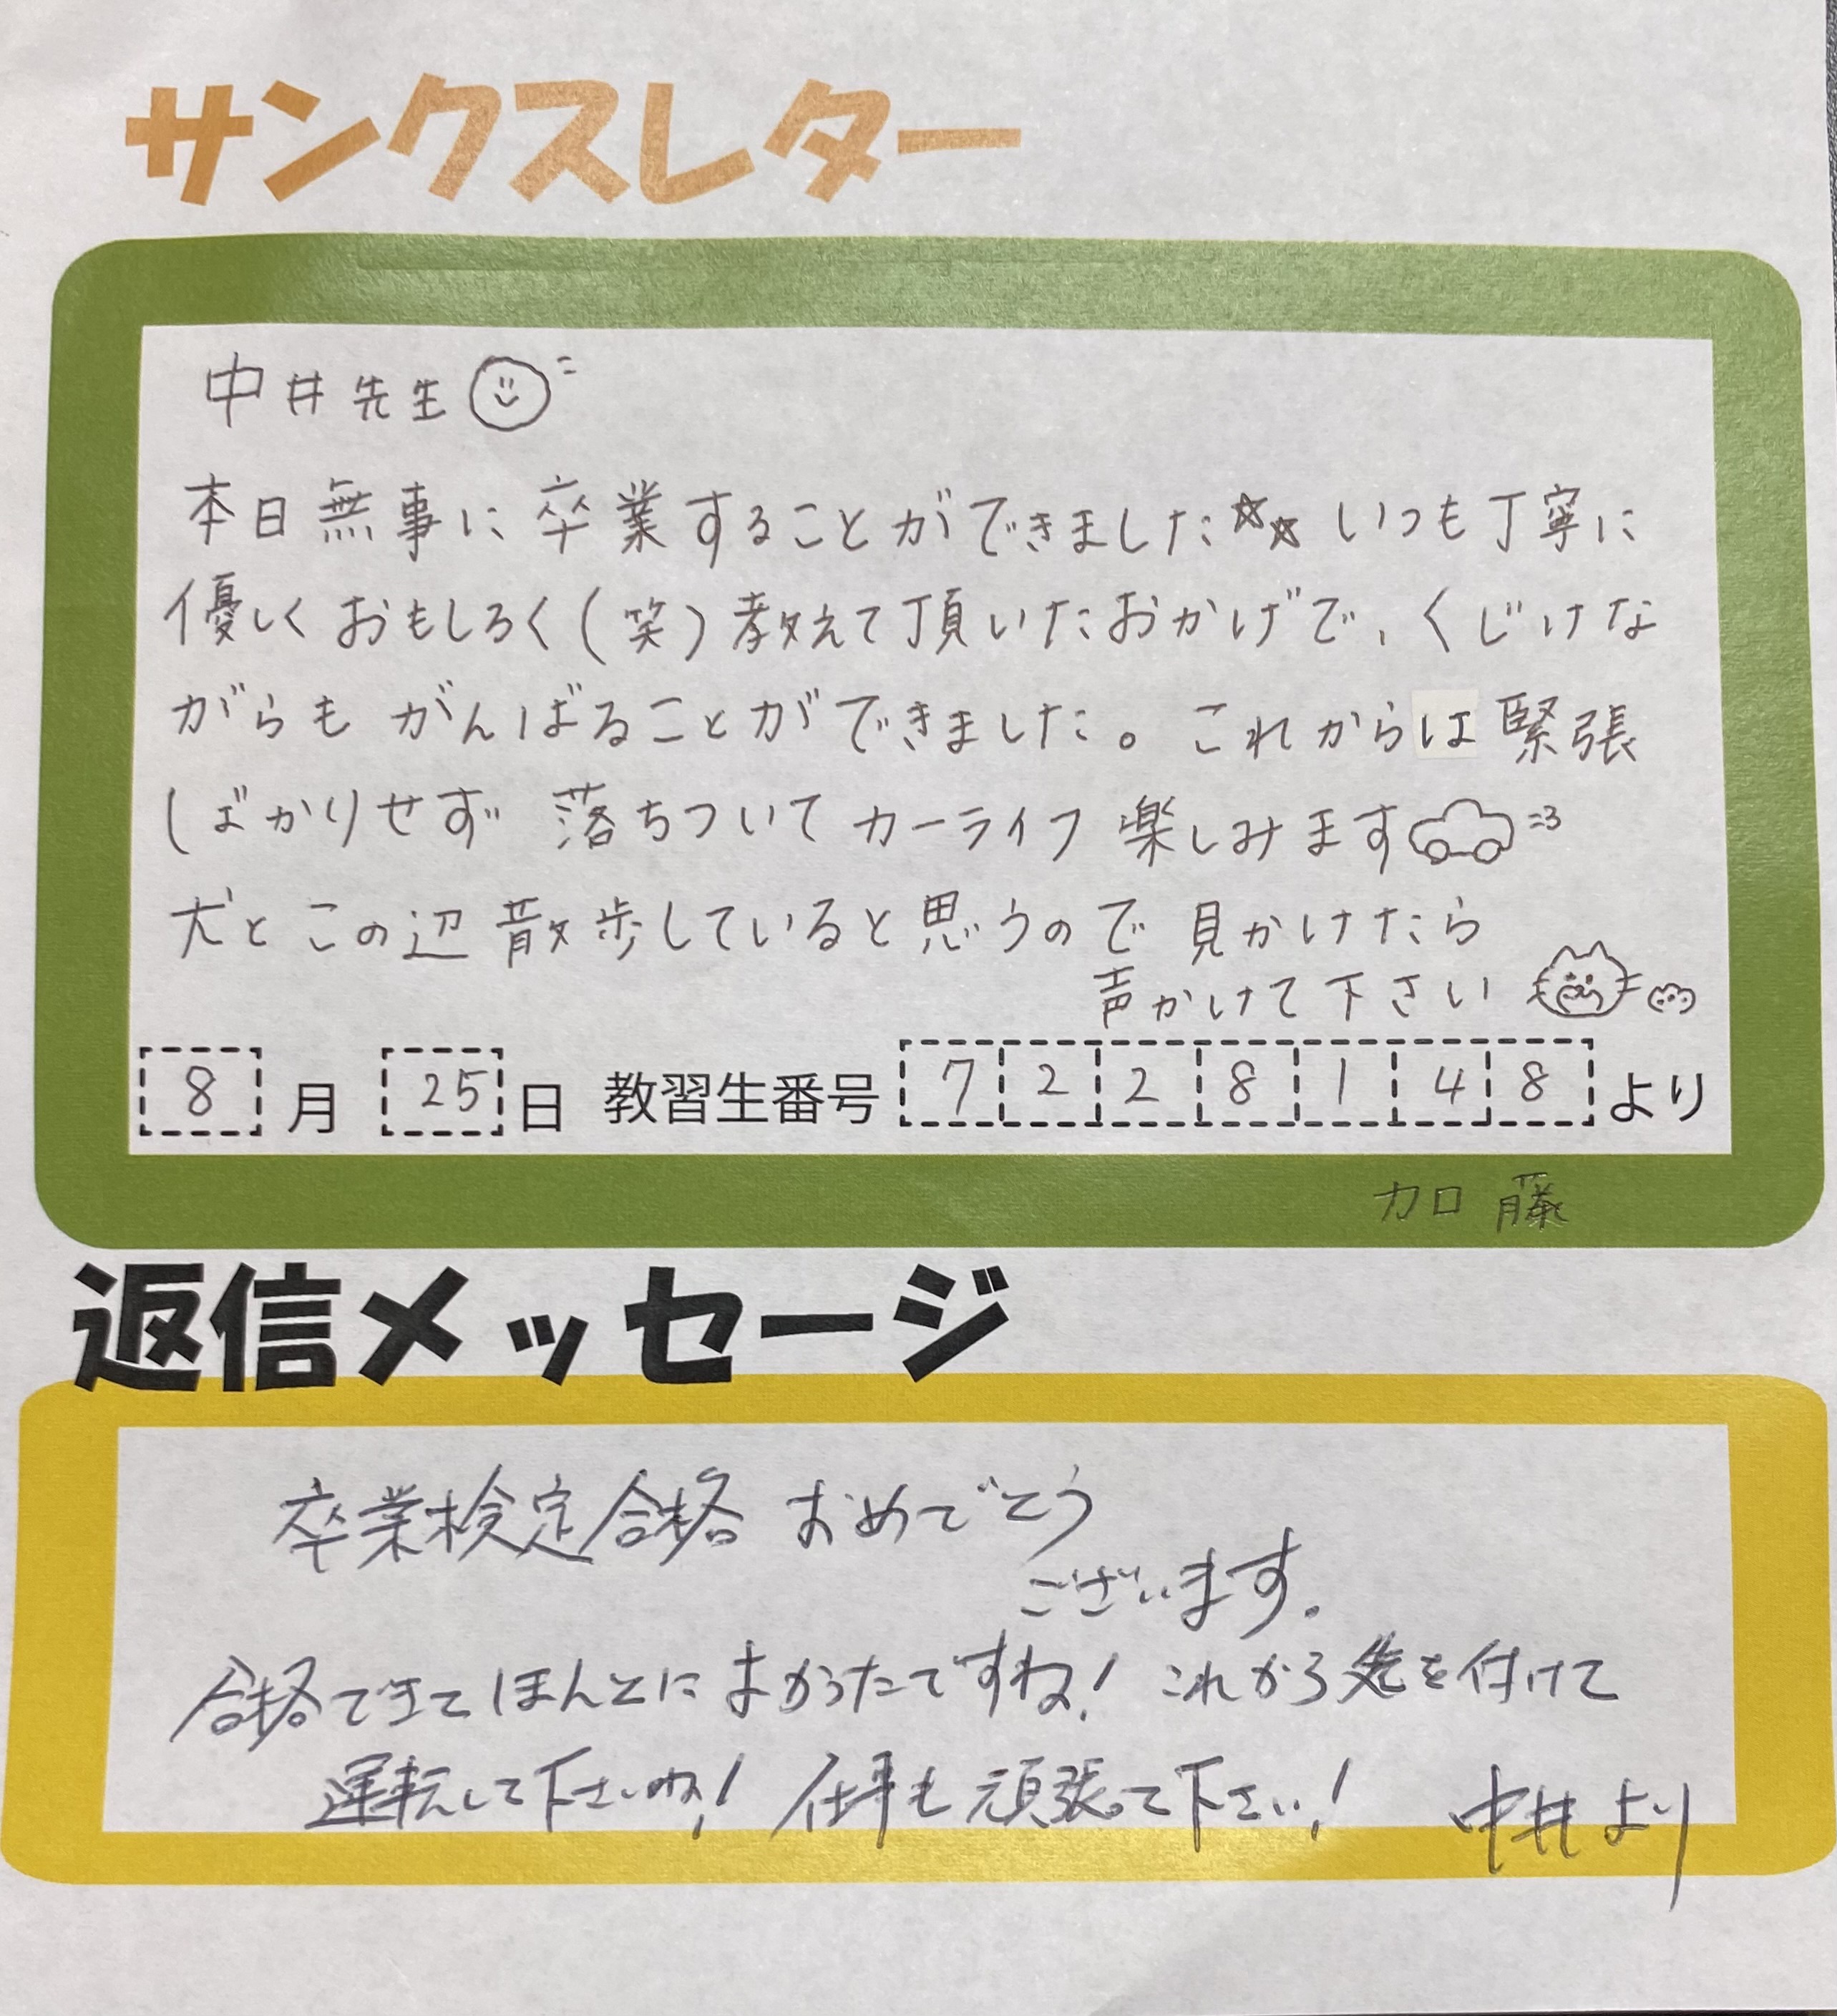 サンクスレター
中井先生
本日無事に卒業することができました☆☆いつも丁寧に
優しくおもしろく(笑)教えて頂いたおかげで、くじけな
がらもがんばることができました。これからは緊張
しばかりせず 落ちついてカーライフ楽しみます
犬とこの辺散歩していると思うので見かけたら
声かけて下さい
8月 25日 教習生番号 7228148より
加藤
返信メッセージ
卒業検定合格 おめでとう
ございます.
合格できてほんとによかったですね! これから気を付けて
運転して下さいね! 仕事も頑張って下さい! 中井より